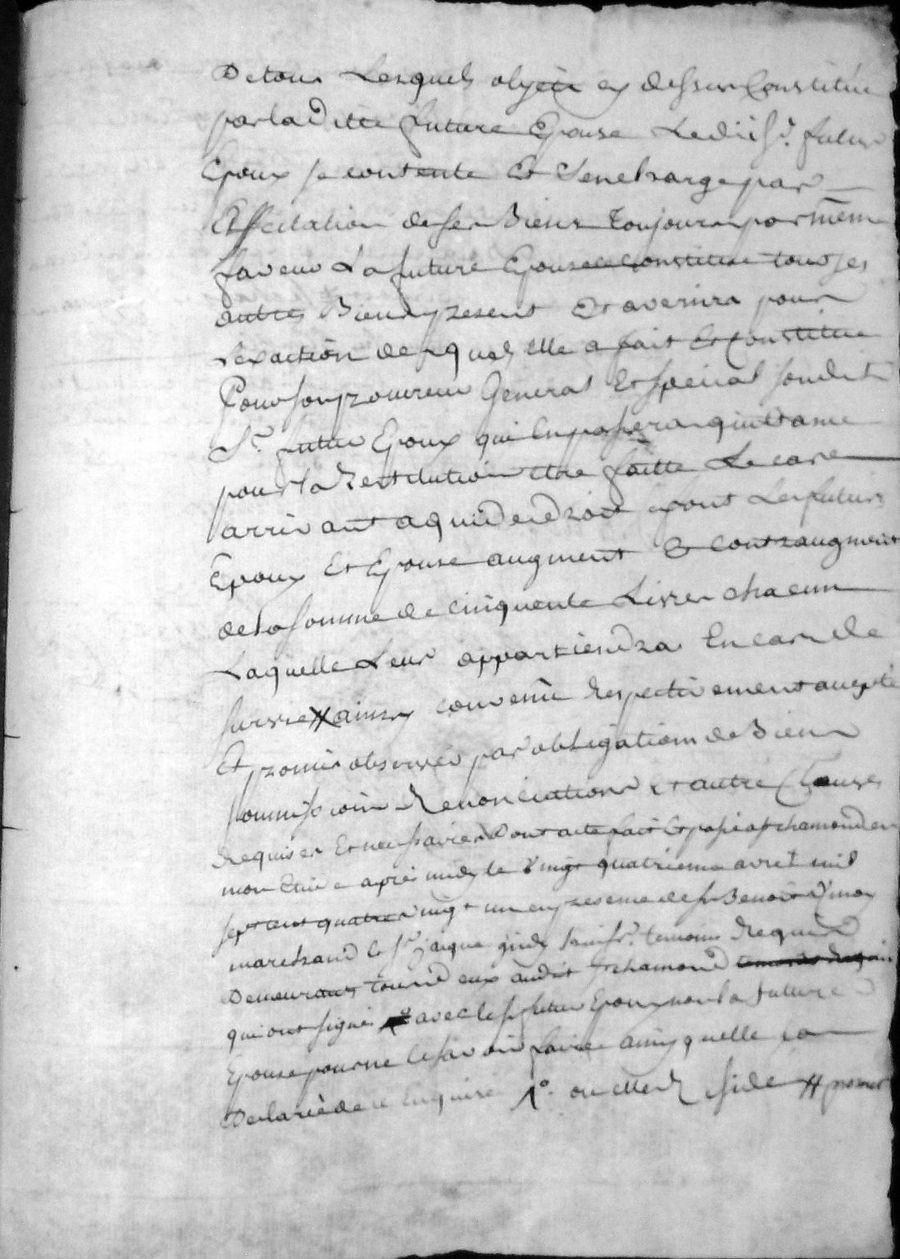 De tous Lesquels objets cy dessus Constitué
par laditte future Epouse Ledit Sr. futur
Epoux se contente Et s'encharge par
affectation de ses Biens toujours par même
faveur La future Epouse constitue tous ses
autres Biens present Et avenirs pour
Lexaction desquels Elle a fait Et constitue
Pour son procureur General Et special sondit
Sr. futur Epoux qui En passera quittance
pour la Restitution Etre faitte Le cas
arrivant a qui de droit font Les futurs
Epoux Et Epouse augment & contraugment
de la somme de cinquente Livres chacun
Laquelle Leur appartiendra En cas de
survie # ainsy convenû Respectivement accepté
Et promis observer par obligations de Biens
soumissions Renonciations Et autre Clauses
Requises Et necessaires Dont acte fait Et passé a St chamond en
mon Etude après midy le vingt quatrieme avril mil
sept cent quatre vingt un en presence de sr Benoit
marchand Et Sr. temoins Requis
Demeurants tous d'eux audit St chamond
qui ont signé avec le sr futur Epoux non la future
Epouse pour ne le savoir faire ainsy quelle la
Declaré de ce Enquise #